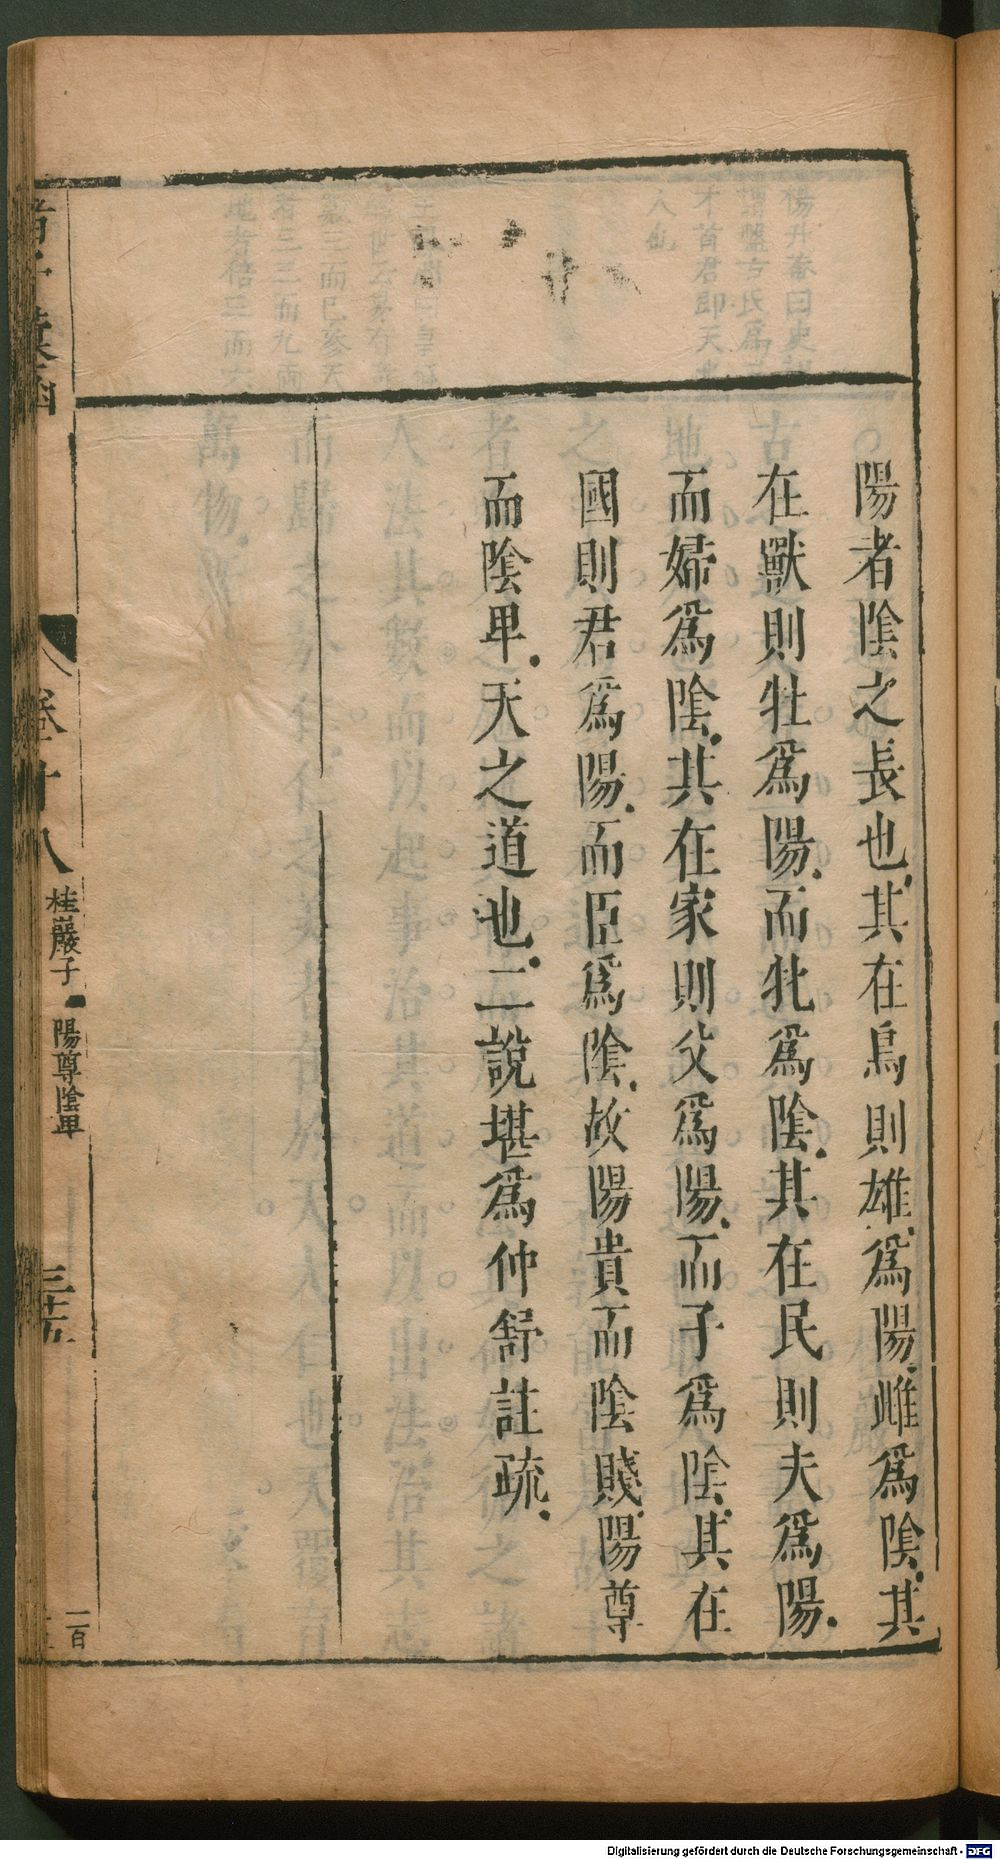 陽者陰之長也其在鳥則雄爲陽雌爲陰其
在獸則牡爲陽而牝爲陰其在民則夫爲陽
而婦爲陰其在家則父爲陽而子爲陰其在
國則君爲陽而臣爲陰故陽貴而陰賤陽尊
而陰卑天之道也二說堪爲仲舒註疏
卷十八
桂巖子
陽尊陰卑
三五
一百
Digitalisierung gefördert durch die Deutsche Forschungsgemeinschaft - DFG